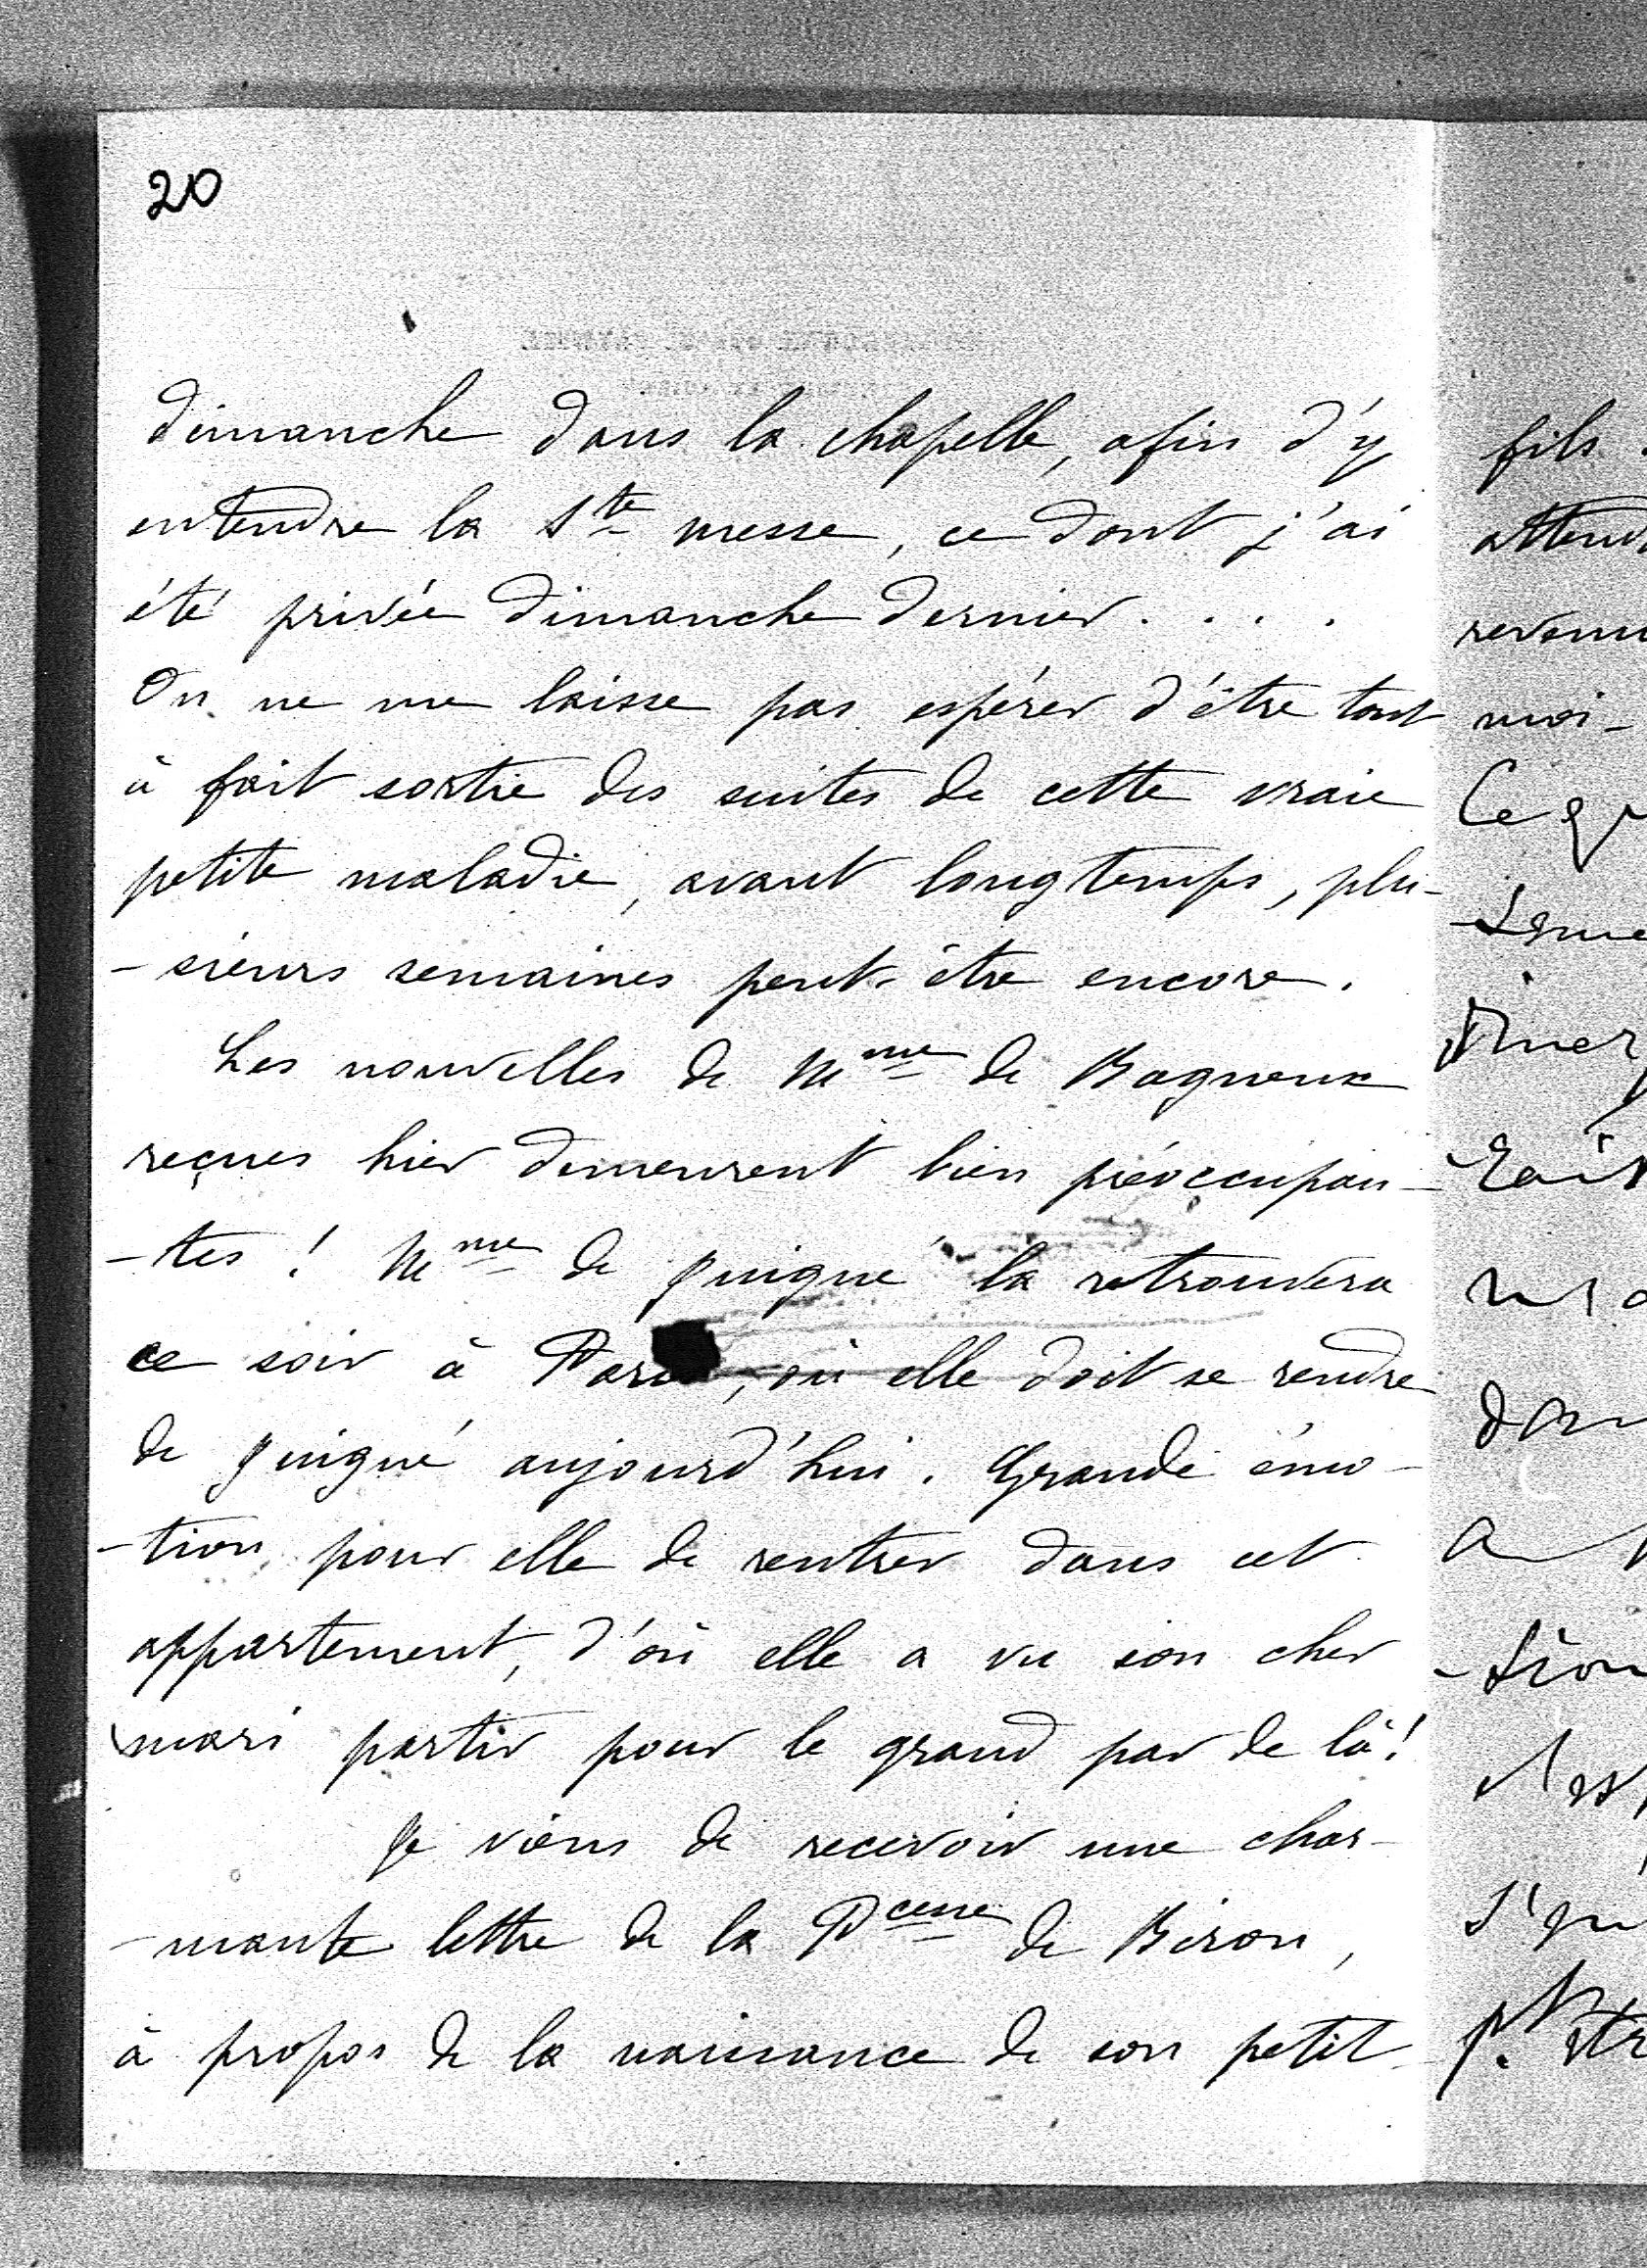 20
dimanche dans la chapelle, afin d'y
entendre la Ste messe, ce dont j'ai
été privée dimanche dernier. . . .
On ne me laisse pas espérer d'être tout
à fait sortie des suites de cette vraie
petite maladie, avant longtemps, plu-
-sieurs semaines peut-être encore.
Les nouvelles de Mme de Bagneux
reçues hier demeurent bien préoccupan-
-tes ! Mme de Juigné la retrouvera
ce soir à Paris, où elle doit se rendre
de Juigné aujourd'hui. Grande émo-
-tion pour elle de rentrer dans cet
appartement, d'où elle a vu son cher
mari partir pour le grand par de là !
Je viens de recevoir une char-
-mante lettre de la Pcesse de Biron,
à propos de la naissance de son petit
fils.
moi-